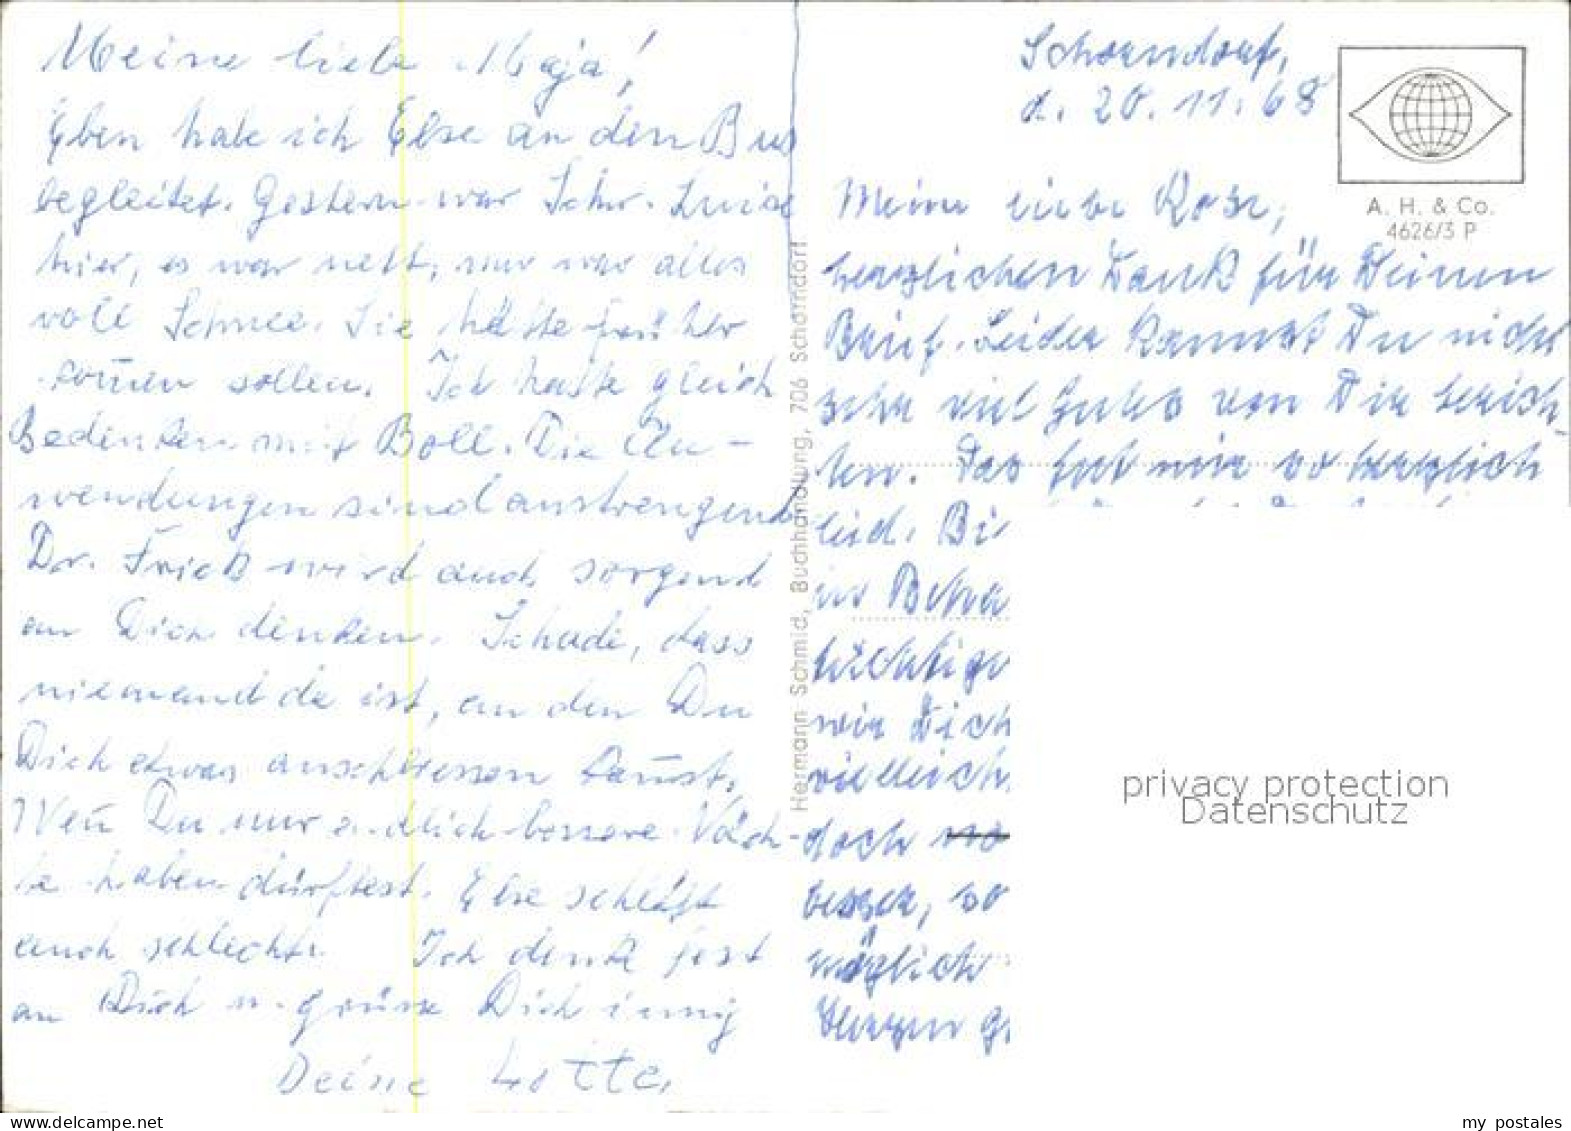 Meine liebe Maja!
Eben habe ich Else an den Bus
begleitet. Gestern war Schw. Luise
hier, es war nett, nur war alles
voll Schnee. Sie hätte früher
kom̄en sollen. Ich hatte gleich
Bedenken mit Boll. Die An-
wendungen sind anstrengend
Dr. Frick wird auch sorgend
an Dich denken. Schade, dass
niemand da ist, an den Du
Dich etwas anschliessen kan̄st.
Wen̄ Du nur endlich bessere Näch-
te haben dürftest. Else schläft
auch schlecht. Ich denk fest
an Dich u. grüsse Dich innig
Deine Lotte.
Hermann Schmid, Buchhandlung, 706 Schorndorf
Schorndorf,
d. 20. 11. 68
A. H. & Co.
4626/3 P
Meine liebe Rose,
herzlichen Dank für Deinen
Brief. Leider kannst Du nicht
sehr viel Gutes von Dir berich-
ten. Das tut mir so herzlich
leid. Bi
in Beha
wir Dich
vielleich
doch
besser, so
möglich
privacy protection
Datenschutz
my_postales